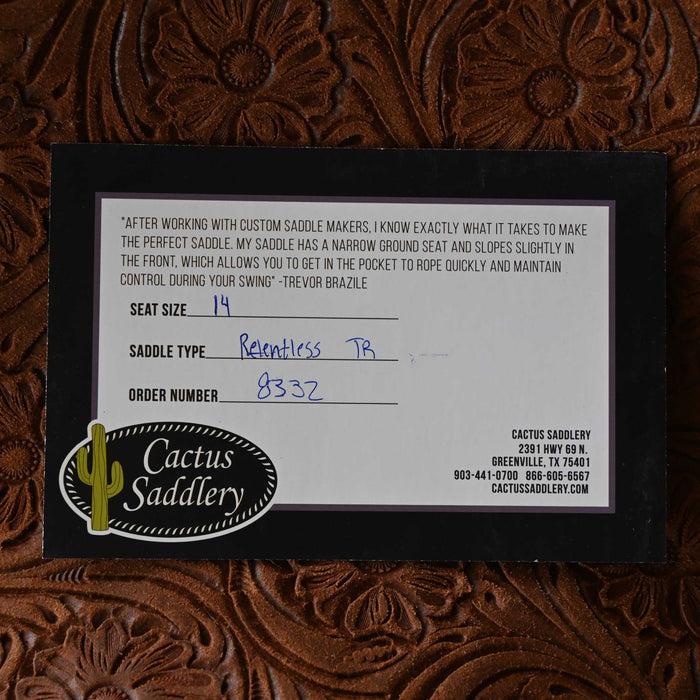 "AFTER WORKING WITH CUSTOM SADDLE MAKERS, I KNOW EXACTLY WHAT IT TAKES TO MAKE
THE PERFECT SADDLE. MY SADDLE HAS A NARROW GROUND SEAT AND SLOPES SLIGHTLY IN
THE FRONT, WHICH ALLOWS YOU TO GET IN THE POCKET TO ROPE QUICKLY AND MAINTAIN
CONTROL DURING YOUR SWING" -TREVOR BRAZILE
SEAT SIZE 14
SADDLE TYPE Relentless TR
ORDER NUMBER 8332
Cactus
Saddlery
CACTUS SADDLERY
2391 HWY 69 N.
GREENVILLE, TX 75401
903-441-0700 866-605-6567
CACTUSSADDLERY.COM